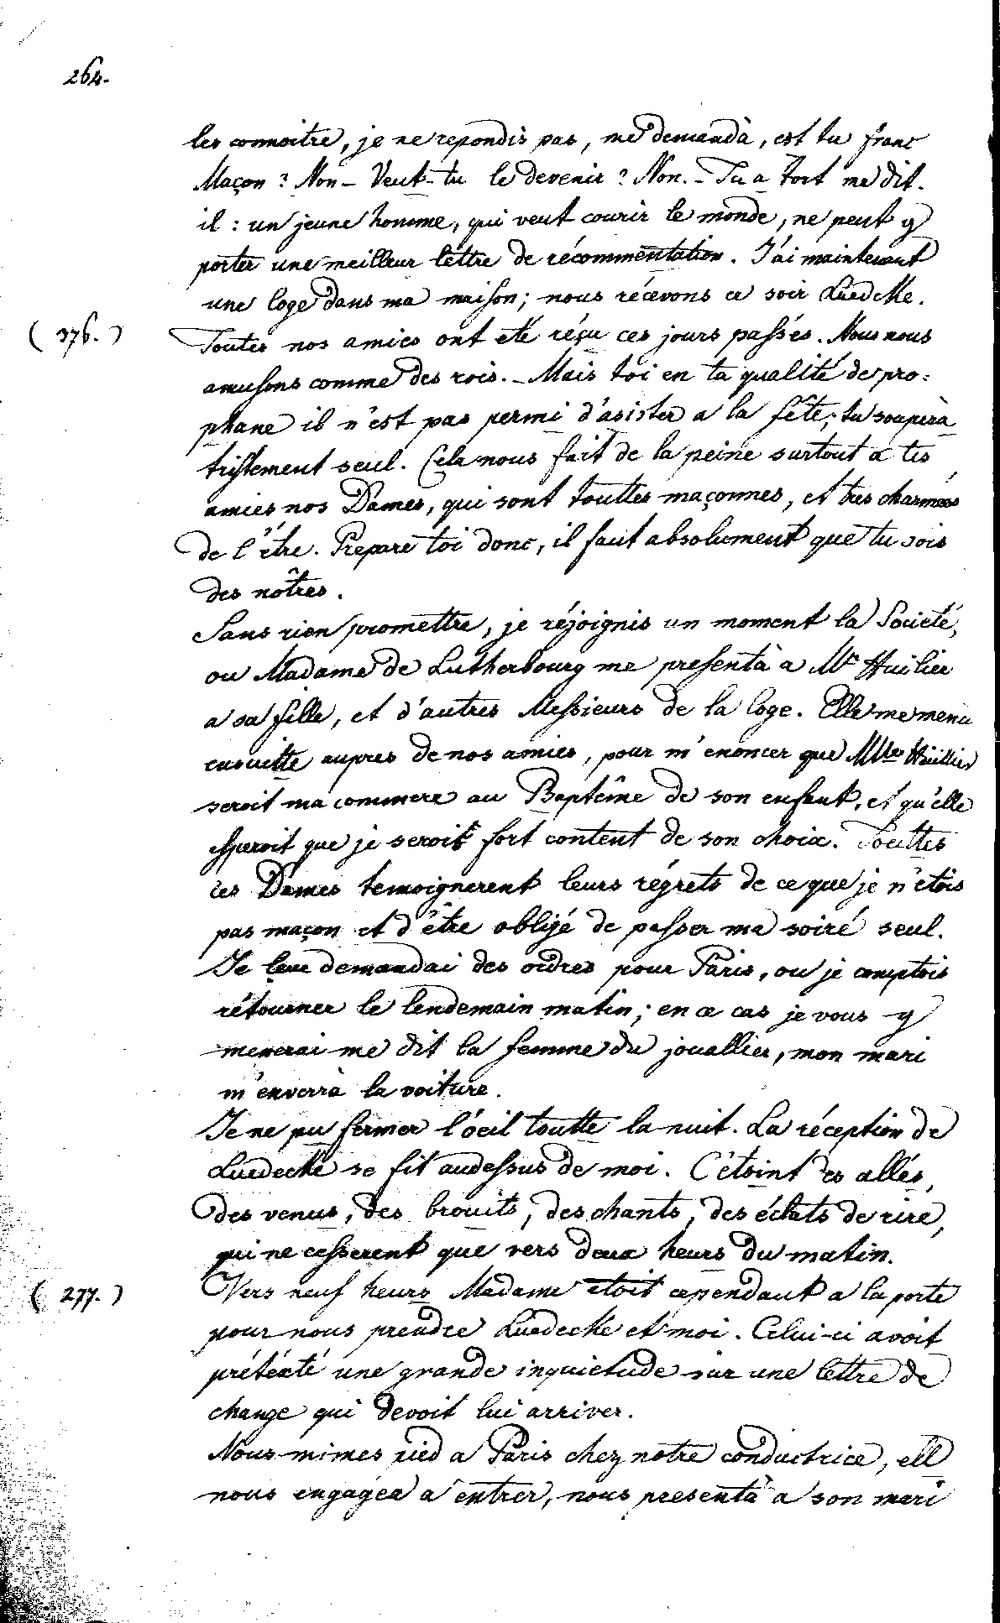 264.
les connoitre, je ne repondis pas, me demandà, est tu franc
Maçon? Non - Veut-tu le devenir? Non. - Tu a tort me dit-
il: un jeune homme, qui veut courir le monde, ne peut y
porter une meilleur lettre de récommentation. J'ai maintenant
une loge dans ma maison; nous récevons ce soir Luedecke.
(376.) Toutes nos amies ont eté réçu ces jours passés. Nous nous
amusons comme des rois. - Mais toi en ta qualité de pro=
phane il n'est pas permi d'asister a la fête; tu souperà
tristement seul. Cela nous fait de la peine surtout a tes
amies nos Dames, qui sont touttes maçonnes, et tres charmées
de l'être. Prepare toi donc, il faut absolument que tu sois
des nôtres.
Sans rien promettre, je réjoignis un moment la Societé,
ou Madame de Lutherbourg me presentà a Mr Huilier
a sa fille, et d'autres Messieurs de la loge. Elle me mena
ensuitte aupres de nos amies, pour m'enoncer que Mlle Huillier
seroit ma commere au Baptême de son enfant, et qu'elle
esperoit que je seroit fort content de son choix. Touttes
ces Dames temoignerent leurs régrets de ce que je n'etois
pas maçon et d'être obligé de passer ma soiré seul.
Je leur demandai des ordres pour Paris, ou je comptois
rétourner le lendemain matin; en ce cas je vous y
menerai me dit la femme du jouallier, mon mari
m'enverrà la voiture.
Je ne pu fermer l'oeil toutte la nuit. La réception de
Luedecke se fit audessus de moi. C'étoint des allés,
des venus, des brouits, des chants, des éclats de rire,
qui ne cesserent que vers deux heurs du matin.
(277.) Vers neuf heurs Madame etoit cependant a la porte
pour nous prendre Luedecke et moi. Celui-ci avoit
prétexté une grande inquietude sur une lettre de
change qui devoit lui arriver.
Nous mimes pied a Paris chez notre conductrice, ell
nous engagea a entrer, nous presentà a son mari